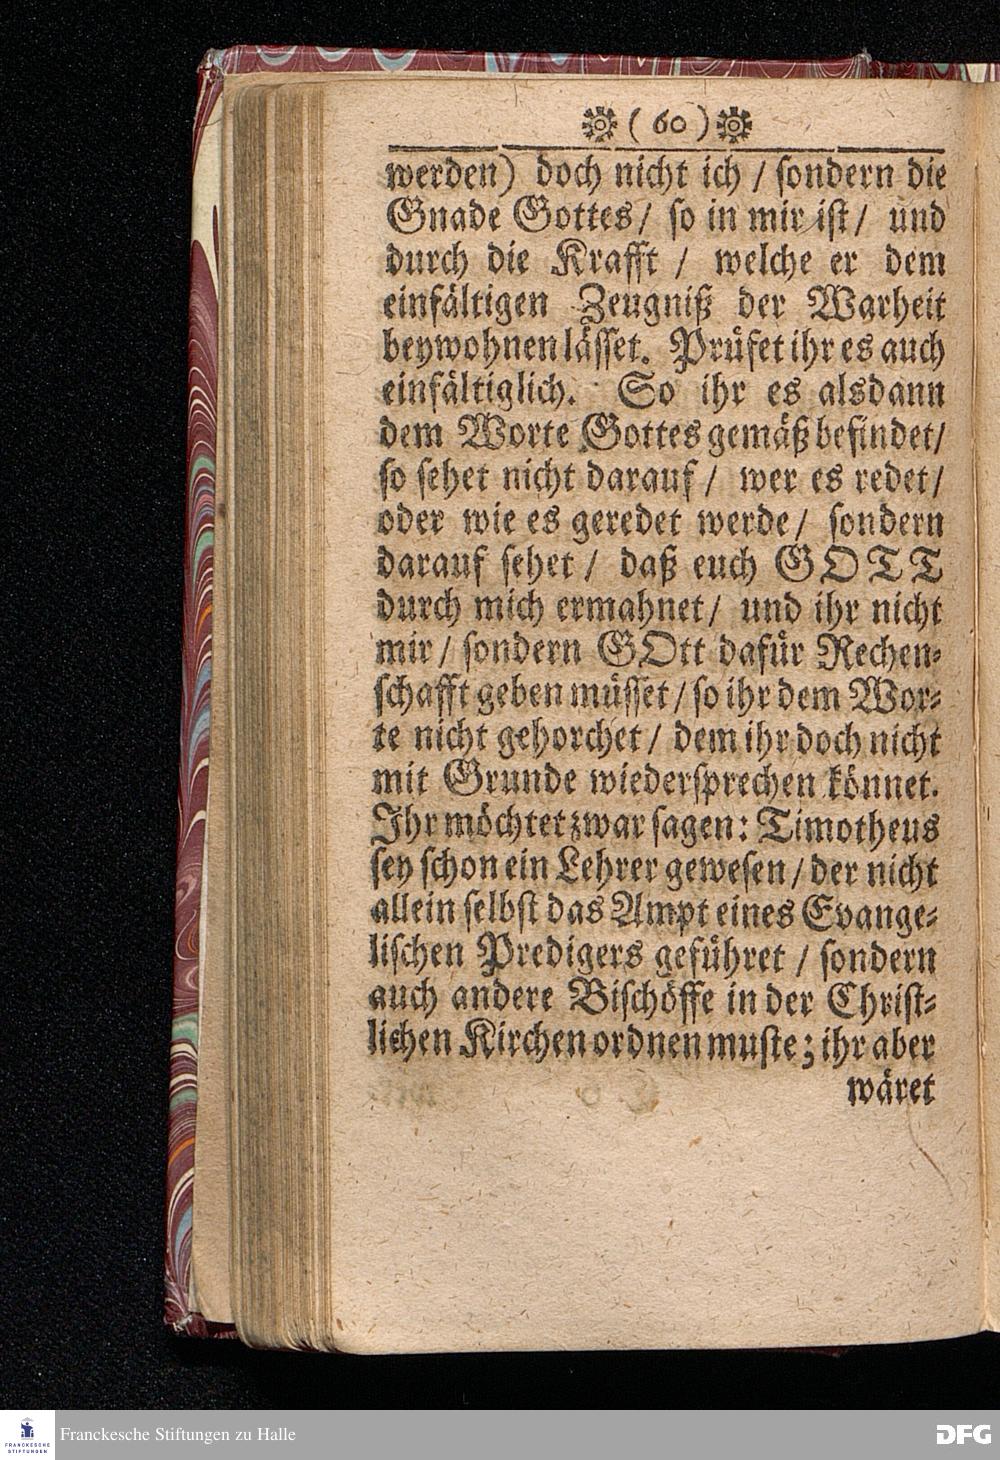 ( 60 )
werden) doch nicht ich / sondern die
Gnade Gottes / so in mir ist / und
durch die Krafft / welche er dem
einfältigen Zeugniß der Warheit
beywohnen lässet. Prüfet ihr es auch
einfältiglich. So ihr es alsdann
dem Worte Gottes gemäß befindet /
so sehet nicht darauf / wer es redet /
oder wie es geredet werde / sondern
darauf sehet / daß euch GOTT
durch mich ermahnet / und ihr nicht
mir / sondern GOtt dafür Rechen-
schafft geben müsset / so ihr dem Wor-
te nicht gehorchet / dem ihr doch nicht
mit Grunde wiedersprechen könnet.
Ihr möchtet zwar sagen: Timotheus
sey schon ein Lehrer gewesen / der nicht
allein selbst das Ampt eines Evange-
lischen Predigers geführet / sondern
auch andere Bischöffe in der Christ-
lichen Kirchen ordnen muste; ihr aber
wäret
FRANCKESCHE
STIFTUNGEN
Franckesche Stiftungen zu Halle
DFG